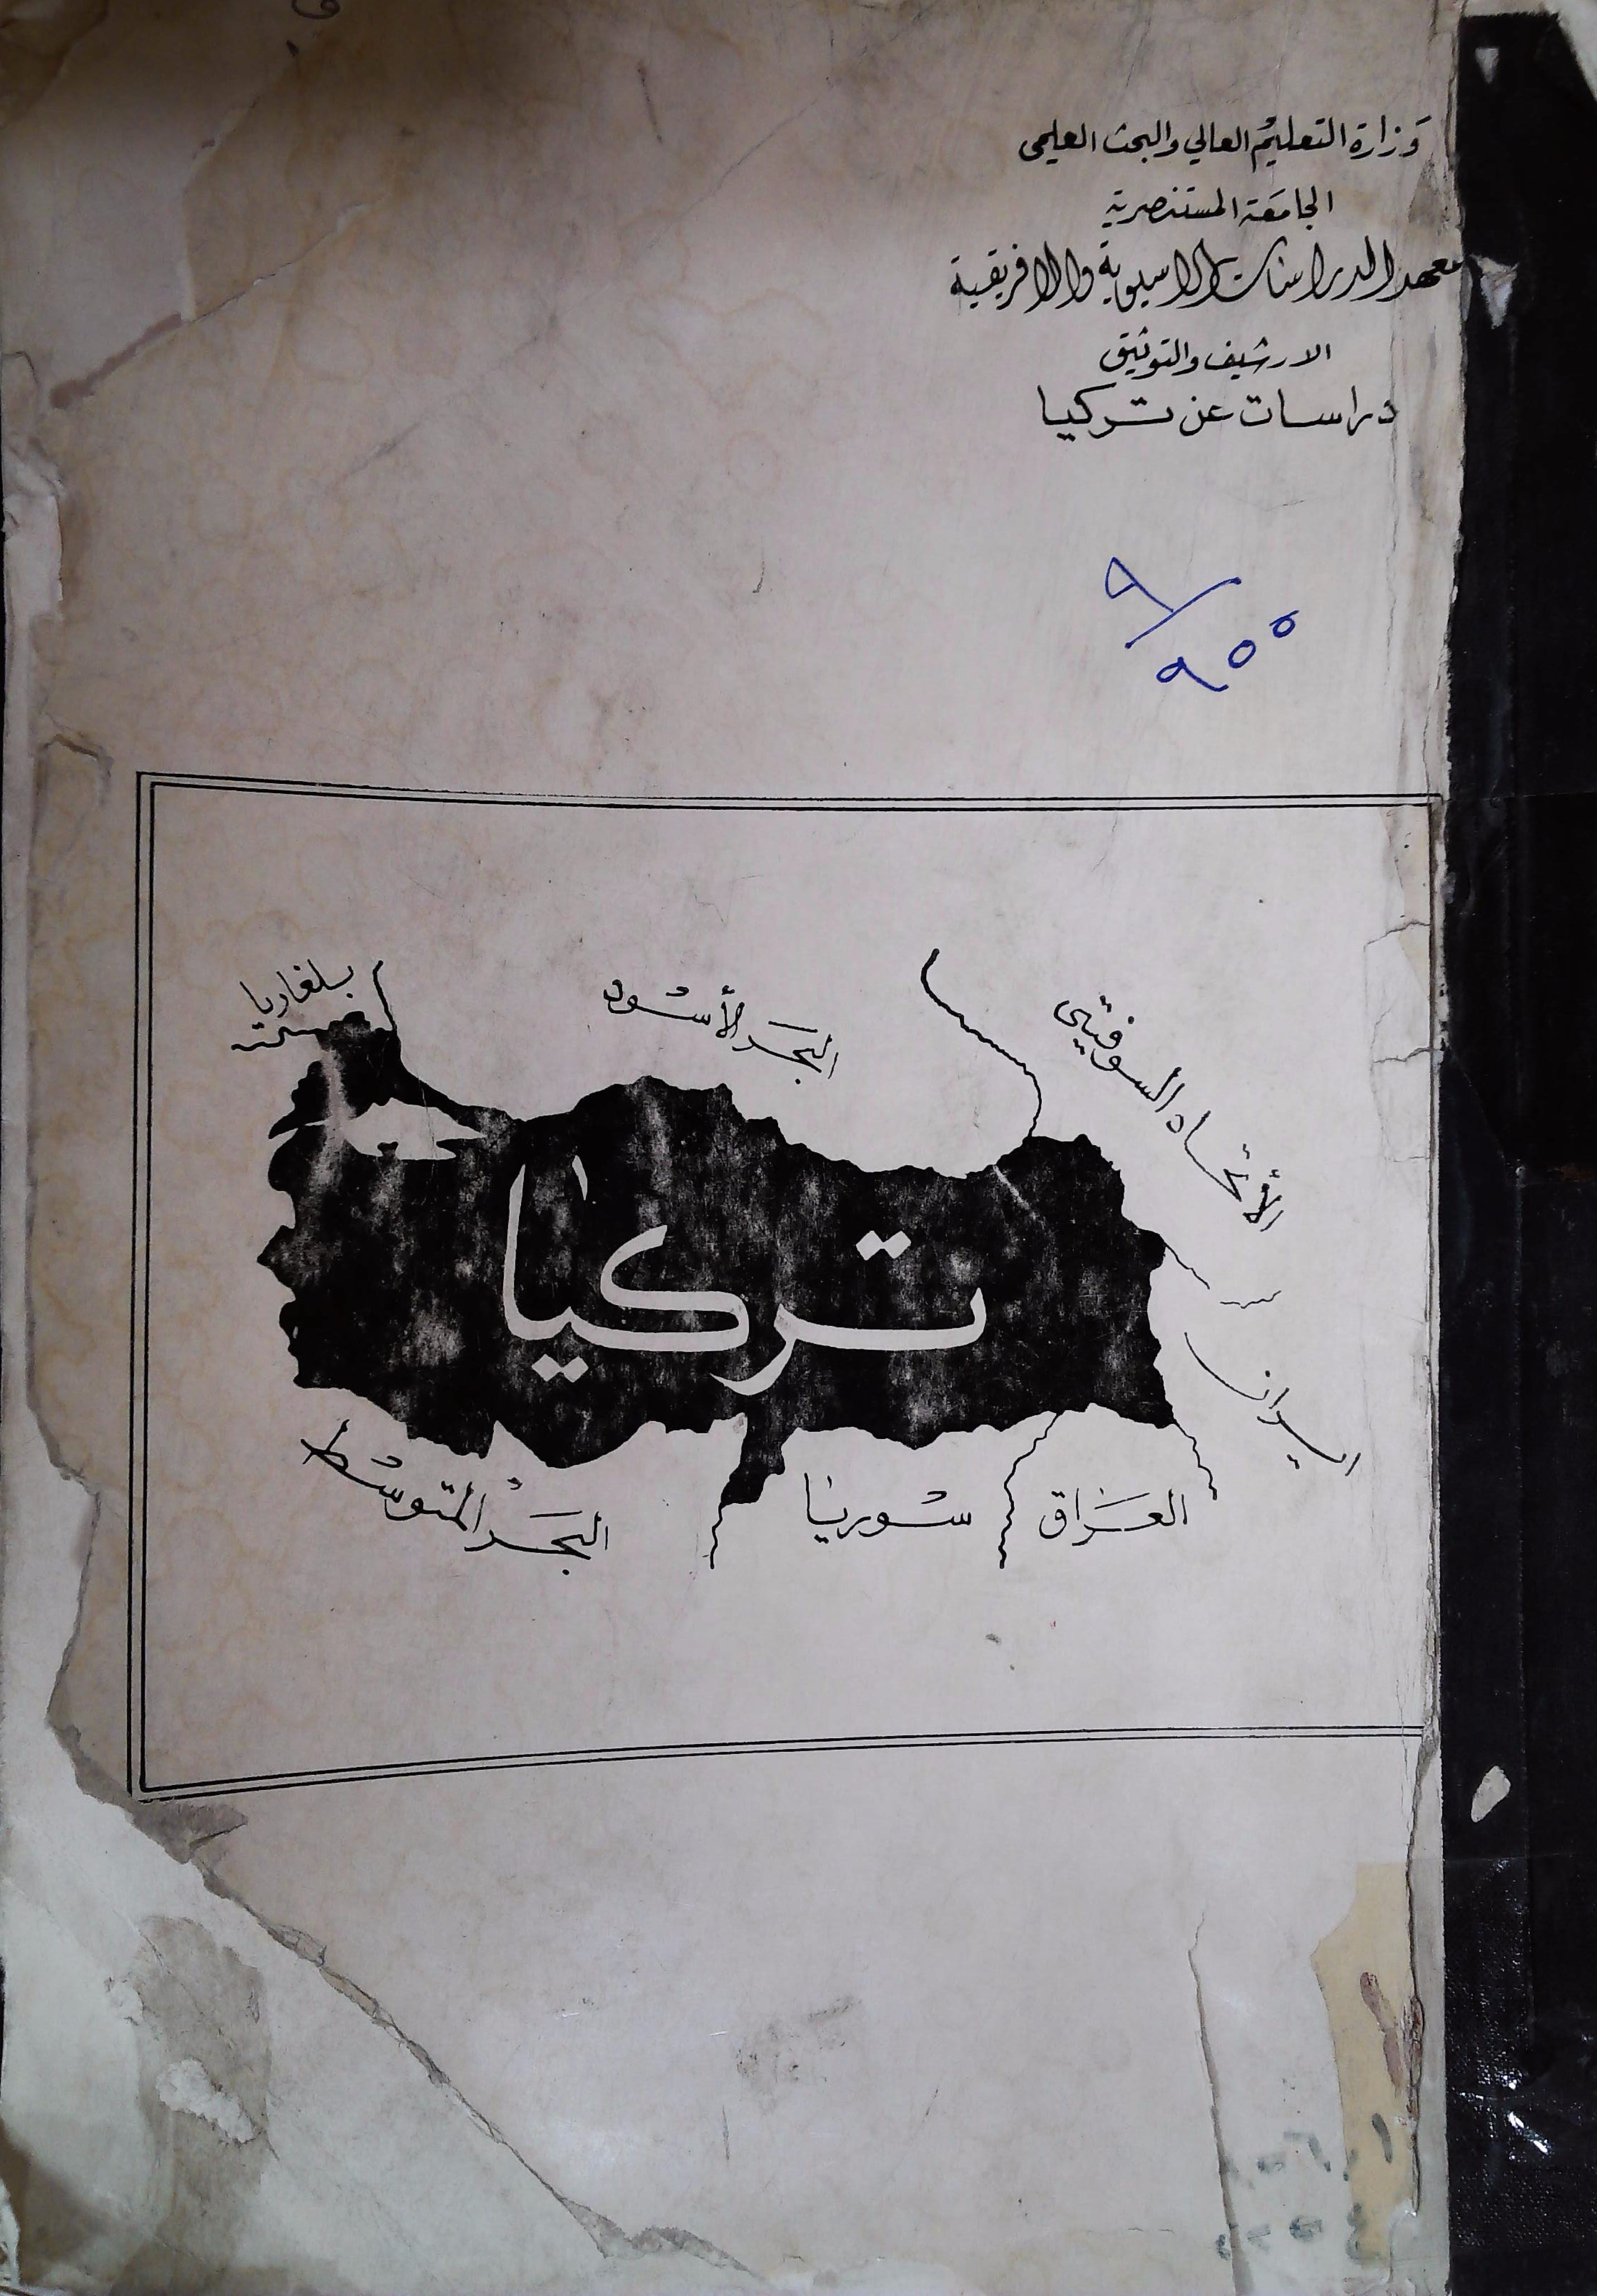 وزارة التعليم العالي والبحث العلمي
الجامعة المستنصرية
معهد الدراسات الاسيوية والافريقية
الارشيف والتوثيق
دراسات عن تركيا
بلغاريا
البحر الأسود
الأتحاد السوفتي
تركيا
ايران
البحر المتوسط
سوريا
العراق